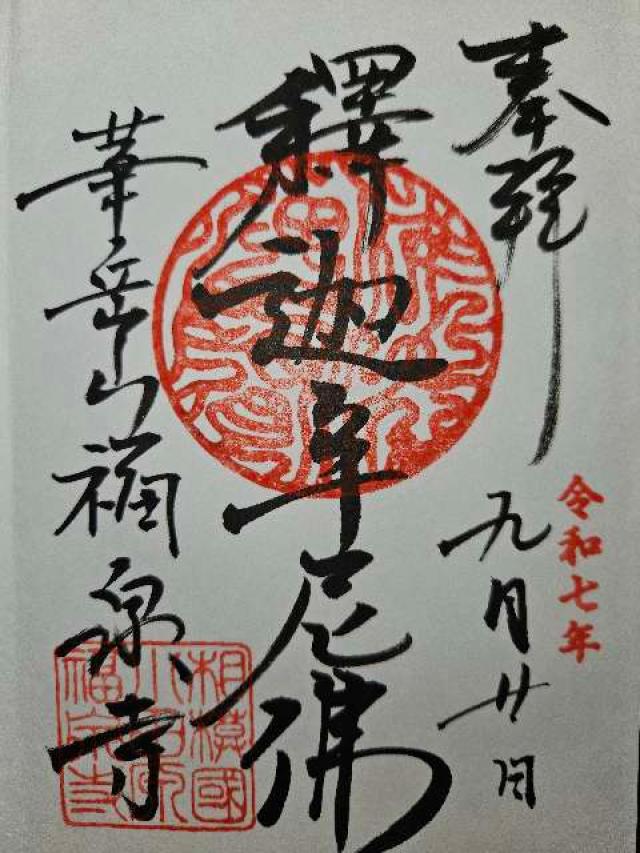 奉拝
令和七年
九月廿日
釋迦牟尼佛
華岳山福泉寺
相模國
福泉寺